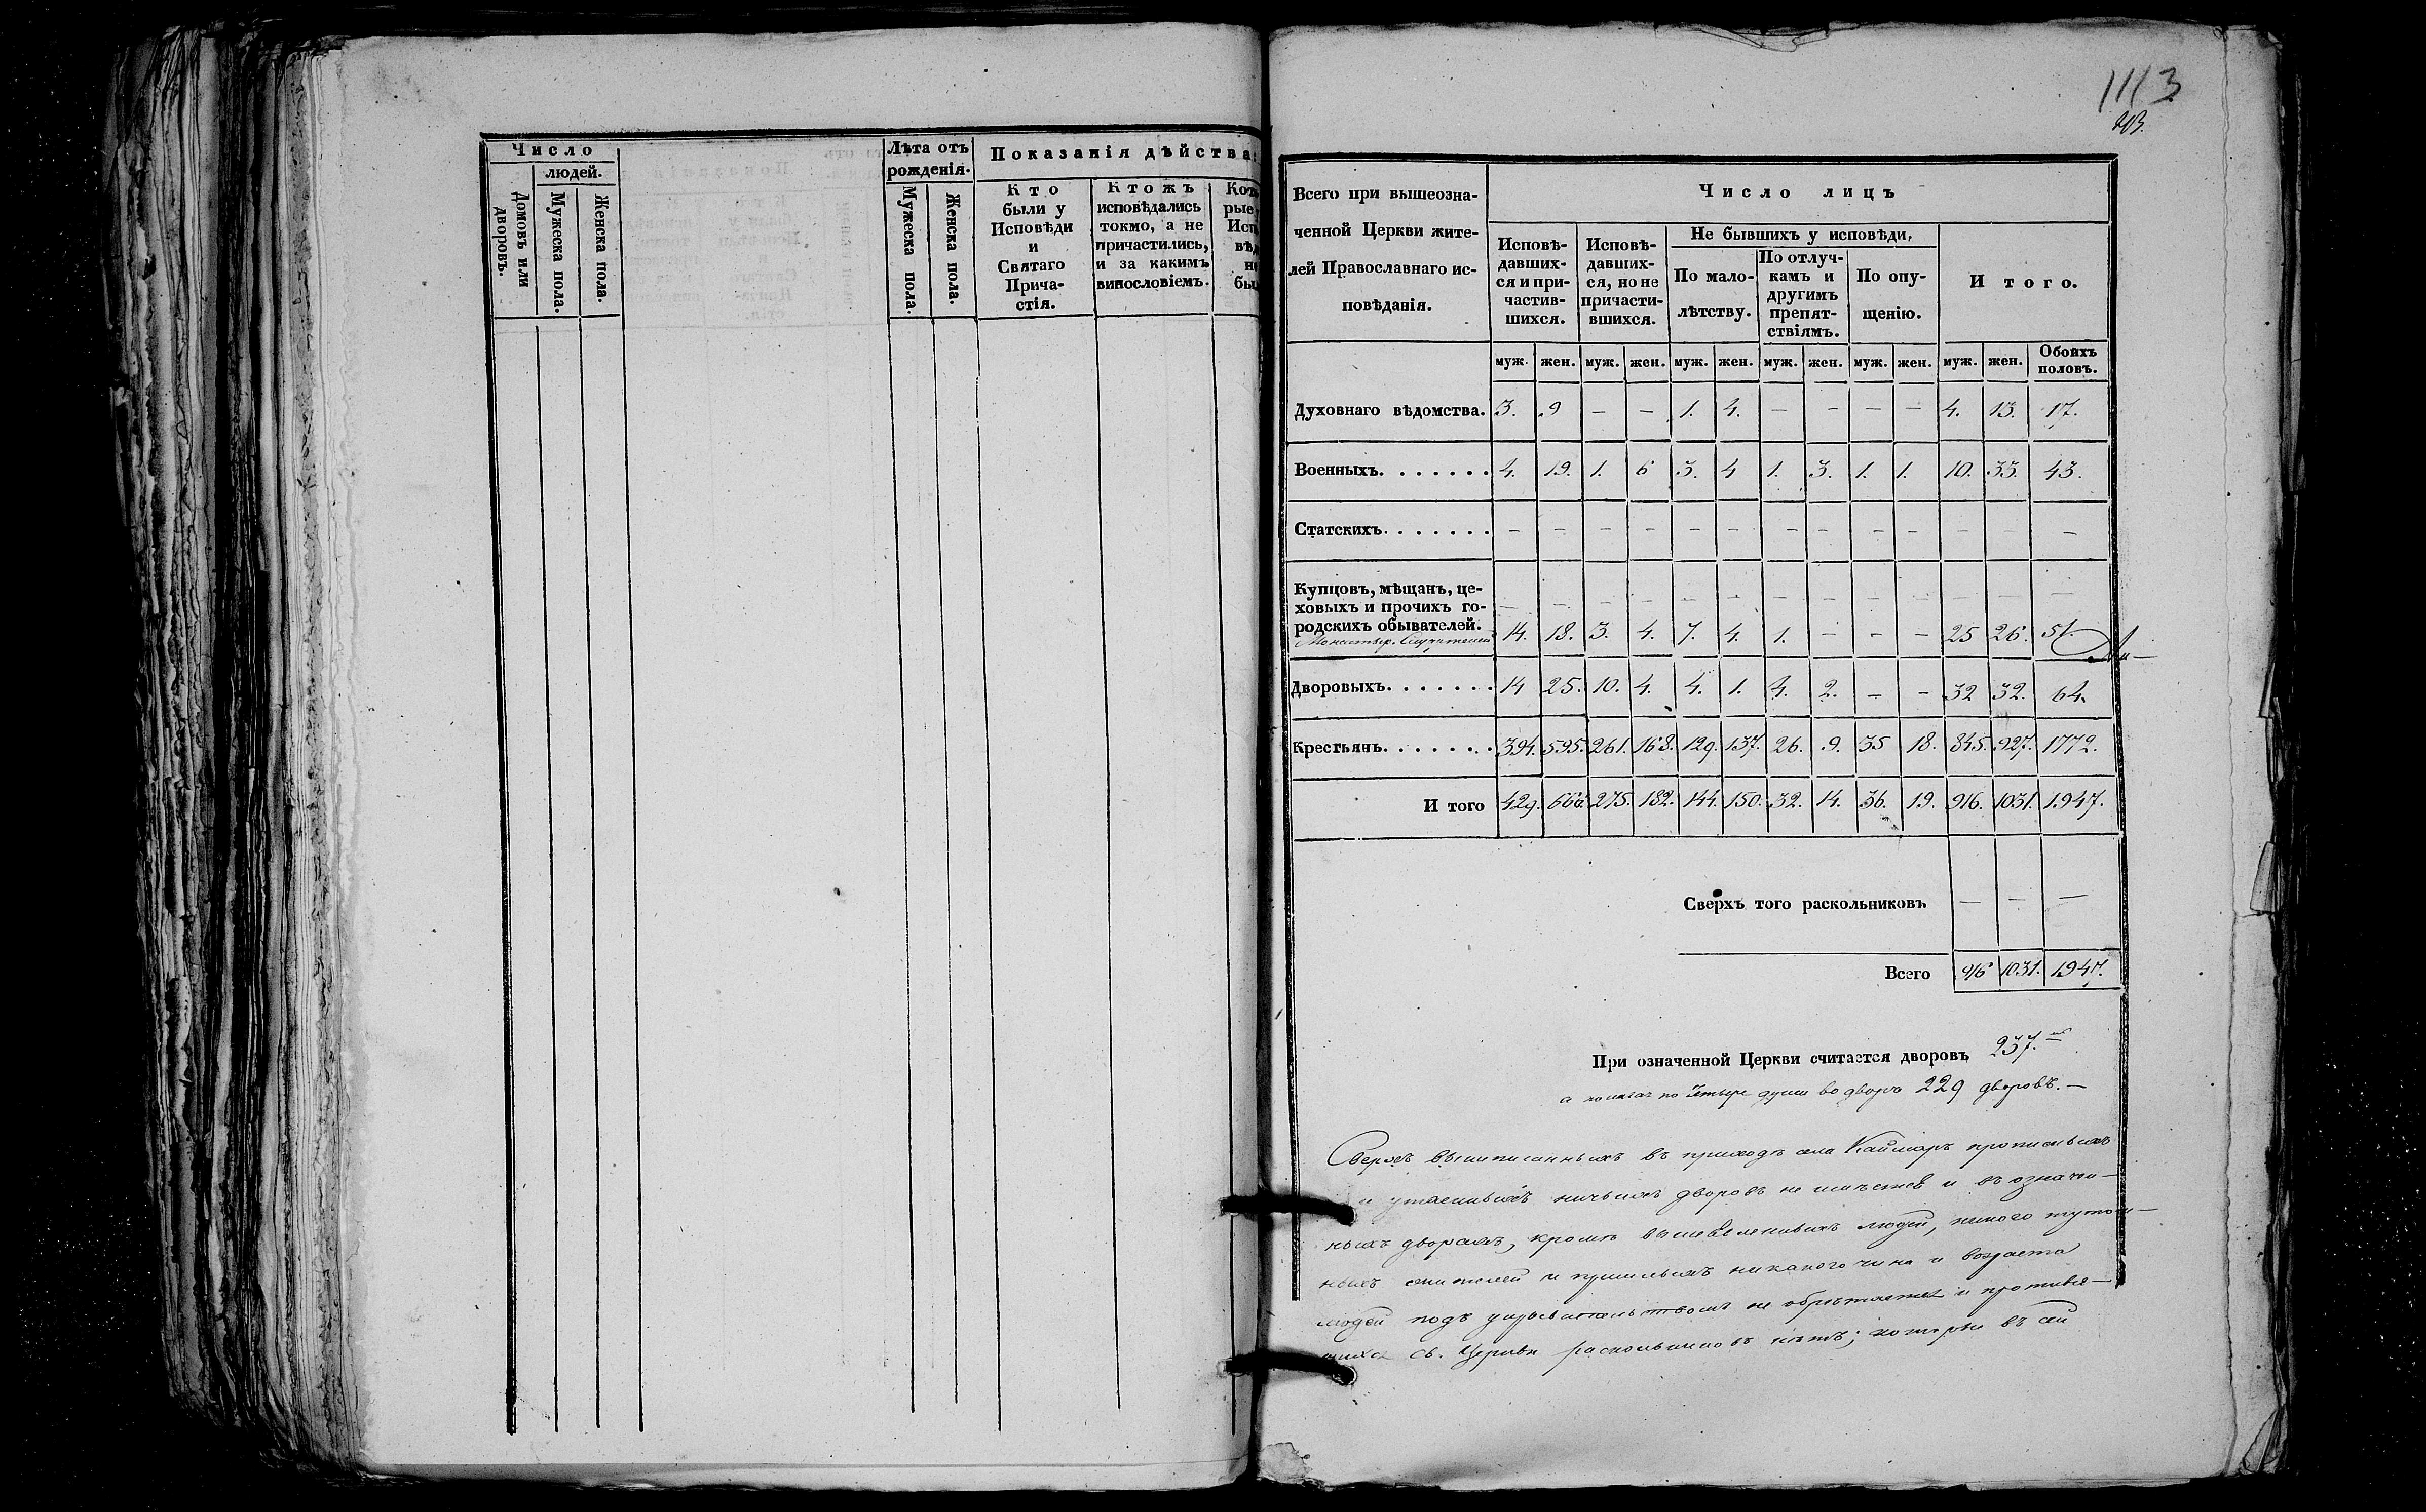 Число
людей.
Домовъ или дворовъ.
Мужеска пола.
Женска пола.
Лѣта отъ
рожденія.
Мужеска пола.
Женска пола.
Показанія дѣйства
Кто
были у
Исповѣди
и
Святаго
Прича-
стія.
Ктожъ
исповѣдались
токмо, а не
причастились,
и за какимъ
винословіемъ.
Кото
рые
Испо
вѣд
не
был
1113
Всего при вышеозна-
ченной Церкви жите-
лей Православнаго ис-
повѣданія.
Число лицъ
Исповѣ-
давших-
ся и при-
частив-
шихся.
Исповѣ-
давших-
ся, но не
причасти-
вшихся.
Не бывшихъ у исповѣди,
По мало-
лѣтству.
По отлуч-
камъ и
другимъ
препят-
ствіямъ.
По опу-
щенію.
Итого.
муж. жен. муж. жен. муж. жен. муж. жен. муж. жен. муж. жен. Обоихъ половъ.
Духовнаго вѣдомства. 3. 9 – – 1. 4. – – – – 4. 13. 17.
Военныхъ. . . . . . . 4. 19. 1. 6 3. 4 1. 3. 1. 1. 10. 33. 43.
Статскихъ. . . . . . . – – – – – – – – – – – – –
Купцовъ, мѣщанъ, це-
ховыхъ и прочихъ го- – – – – – – – – – – – – –
родскихъ обывателей.
Монастыр. Служителей 14. 18. 3. 4. 7. 4. 1. – – – 25 26. 51.
Дворовыхъ. . . . . . . 14 25. 10. 4. 4. 1. 4. 2. – – 32 32. 64.
Крестьянъ. . . . . . . 394. 595. 261. 168. 129. 137. 26. 9. 35 18. 845. 927. 1772.
И того 429. 666 275. 182. 144. 150. 32. 14. 36. 19. 916. 1031. 1947.
Сверхъ того раскольниковъ – – –
Всего 916 1031. 1947.
При означенной Церкви считается дворовъ 237.
а полагая по четыре души во дворъ 229 дворовъ. –
Сверхъ вышеписанныхъ въ приходѣ села Каймаръ прописныхъ
и утаенныхъ ничьихъ дворовъ не имѣется и въ означен-
ныхъ дворахъ, кромѣ вышеявленныхъ людей, никого тутош-
ныхъ жителей и пришлыхъ никакого чина и возраста
людей подъ укрывательствомъ не обрѣтается и противя-
щихся св. Церкви раскольниковъ нѣтъ; которые въ сей